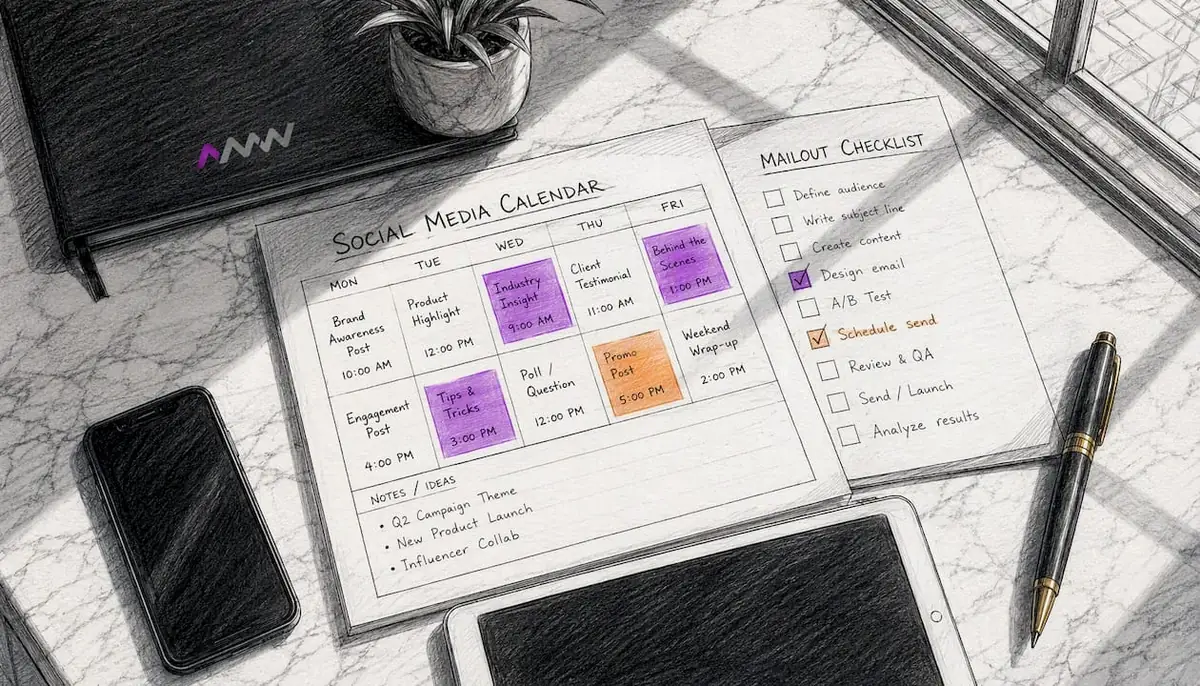 AMW
SOCIAL MEDIA CALENDAR
MON
TUE
WED
THU
FRI
Brand
Awareness
Post
10:00 AM
Product
Highlight
12:00 PM
Industry
Insight
9:00 AM
Client
Testimonial
11:00 AM
Behind the
Scenes
1:00 PM
Engagement
Post
4:00 PM
Tips &
Tricks
3:00 PM
Poll /
Question
12:00 PM
Promo
Post
5:00 PM
Weekend
Wrap-up
2:00 PM
NOTES / IDEAS
• Q2 Campaign Theme
• New Product Launch
• Influencer Collab
MAILOUT CHECKLIST
Define audience
Write subject line
Create content
Design email
A/B Test
Schedule send
Review & QA
Send / Launch
Analyze results